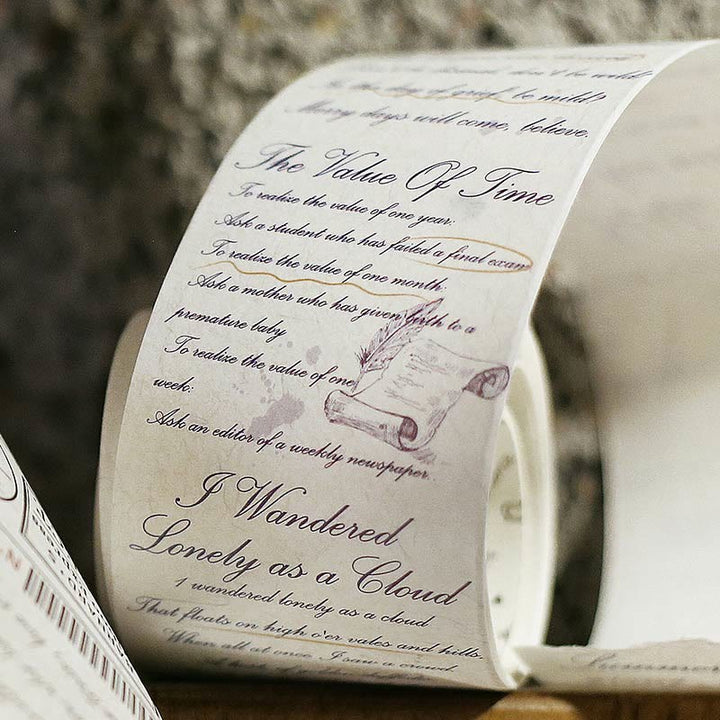 the day of grief, be mild?
Merry days will come, believe.
The Value Of Time
To realize the value of one year:
Ask a student who has failed a final exam
To realize the value of one month:
Ask a mother who has given birth to a
premature baby
To realize the value of one
week:
Ask an editor of a weekly newspaper.
I Wandered
Lonely as a Cloud
I wandered lonely as a cloud
That floats on high o'er vales and hills,
When all at once I saw a crowd,